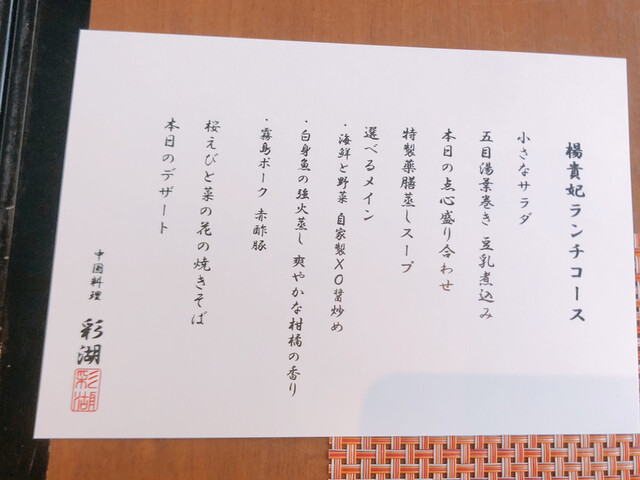 楊貴妃ランチコース
小さなサラダ
五目湯葉巻き 豆乳煮込み
本日の点心盛り合わせ
特製薬膳蒸しスープ
選べるメイン
・海鮮と野菜 自家製XO醤炒め
・白身魚の強火蒸し 爽やかな柑橘の香り
・霧島ポーク 赤酢豚
桜えびと菜の花の焼きそば
本日のデザート
中国料理 彩湖
彩湖